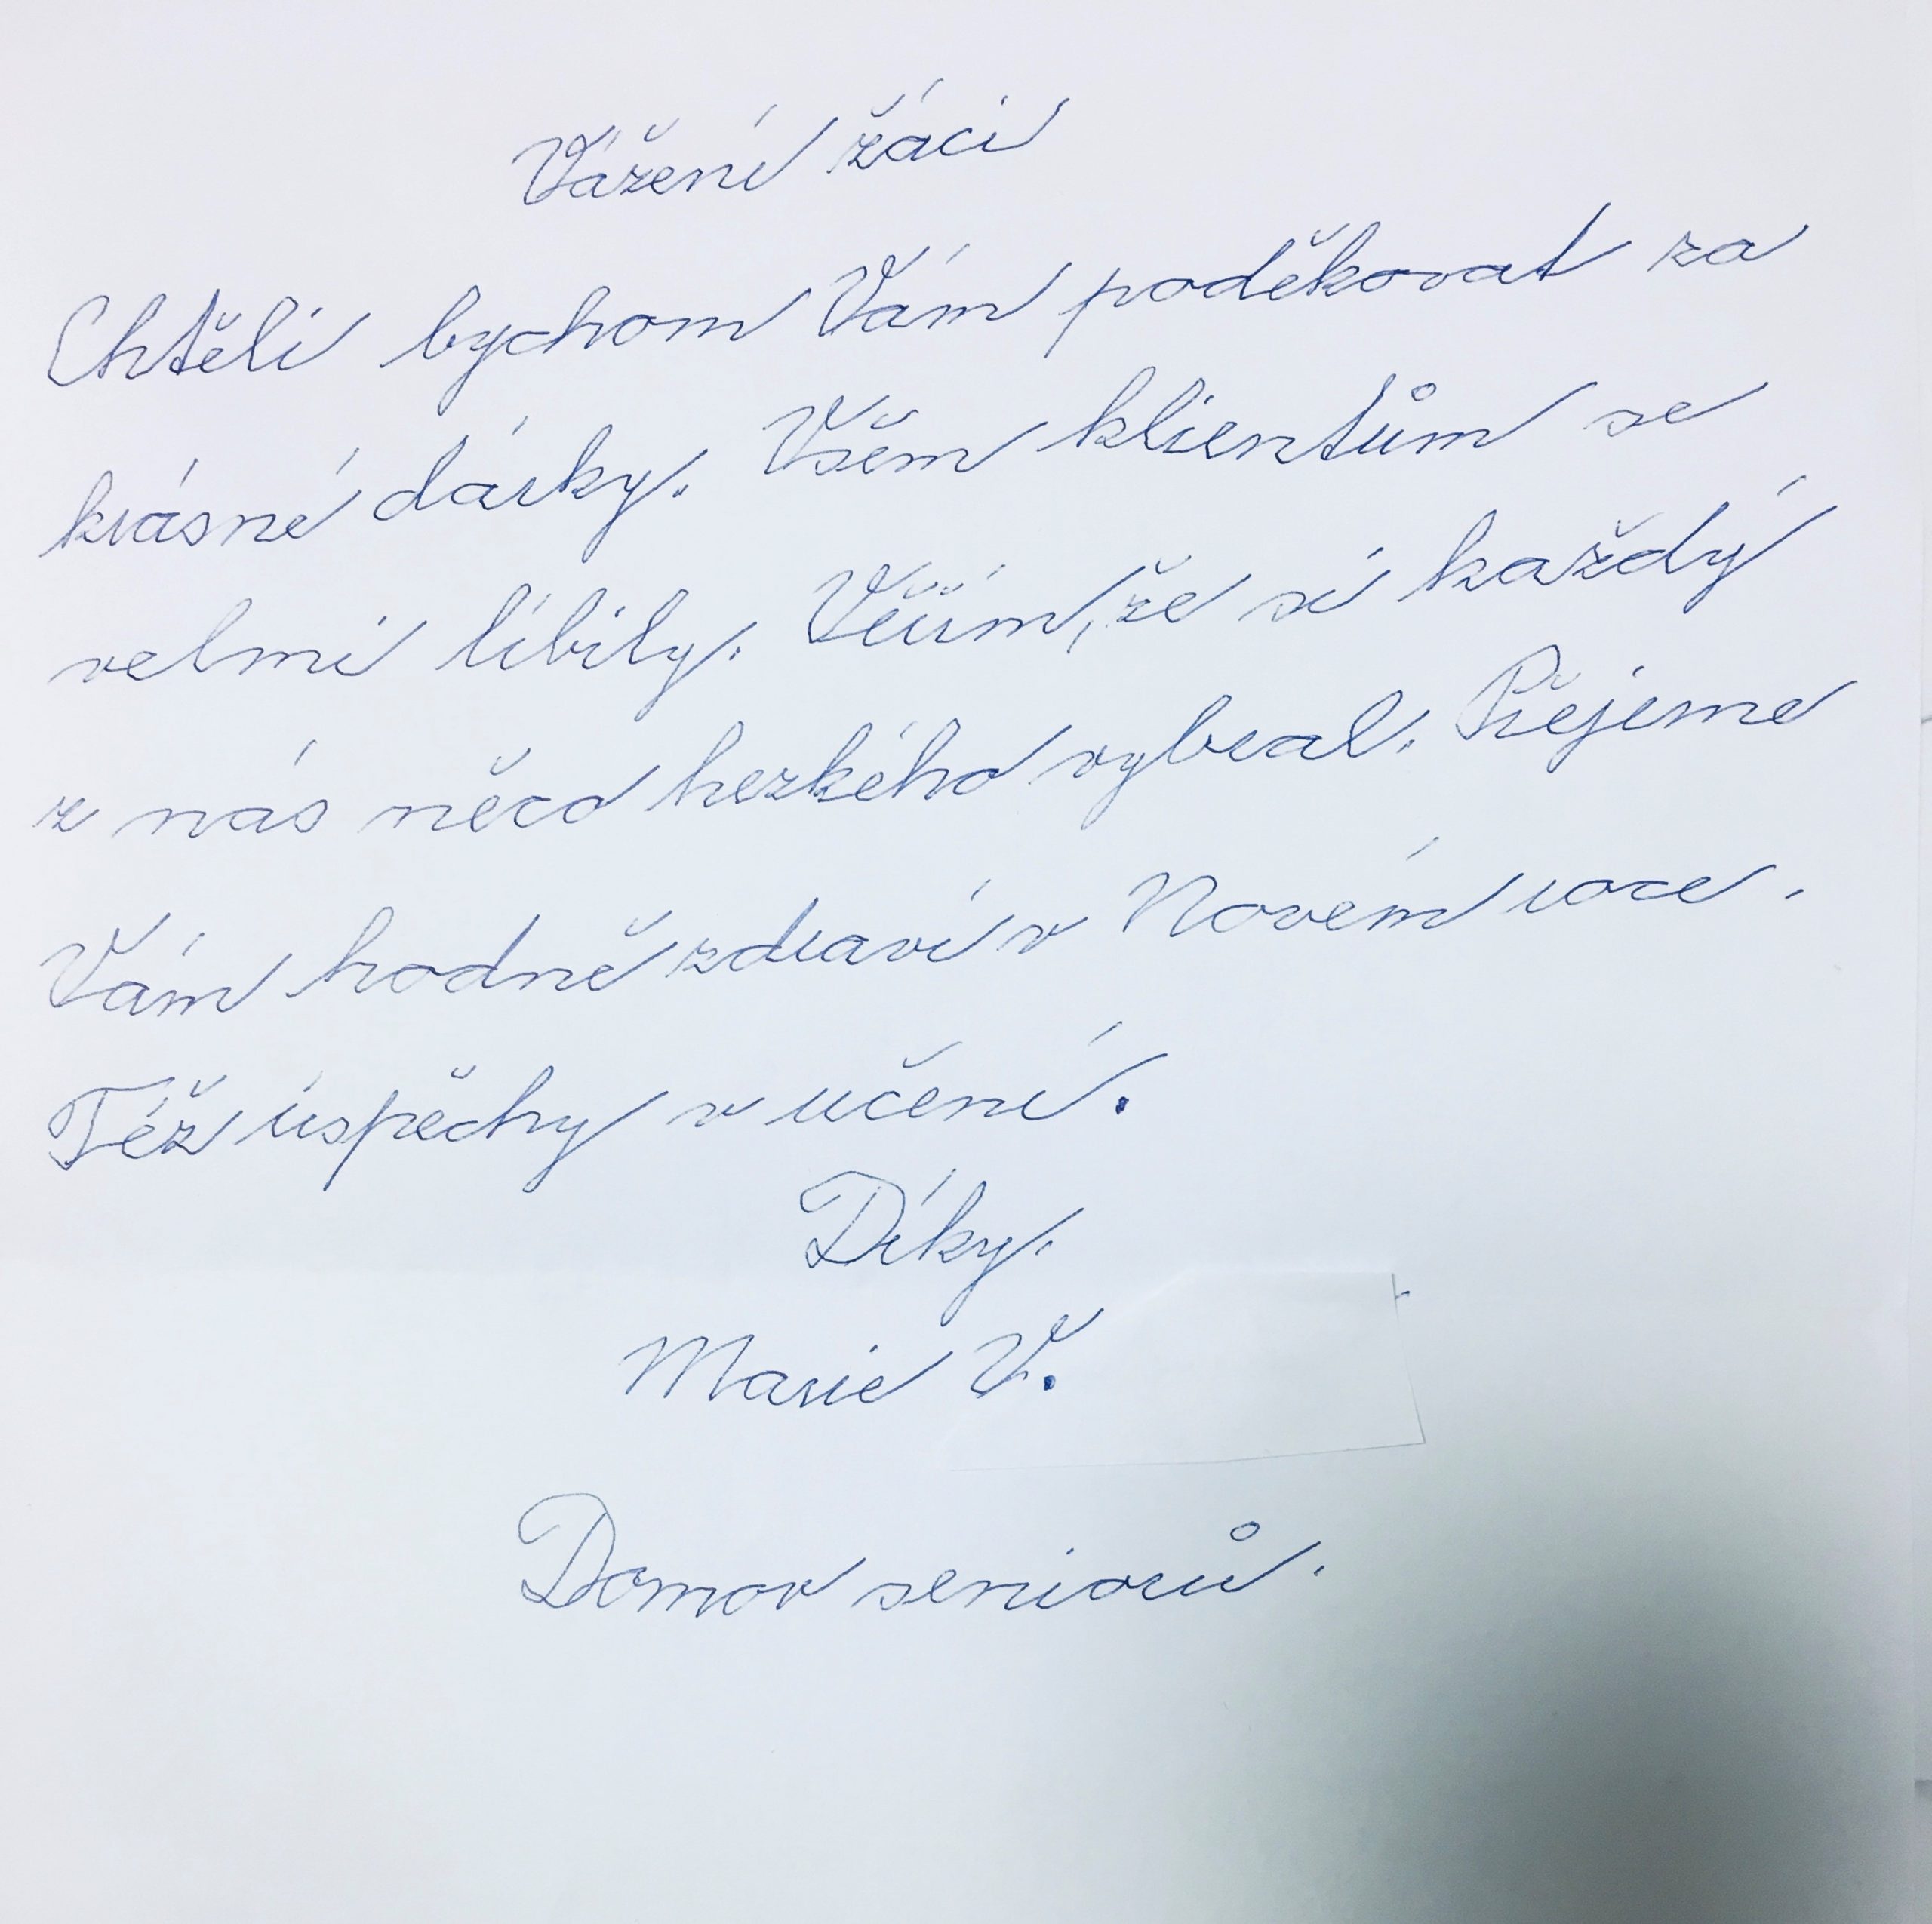 Vážení žáci
Chtěli bychom Vám poděkovat za
krásné dárky. Všem klientům se
velmi líbily. Věřím, že si každý
z nás něco hezkého vybral. Přejeme
Vám hodně zdraví v Novém roce.
Též úspěchy v učení.
Díky.
Marie V.
Domov seniorů.